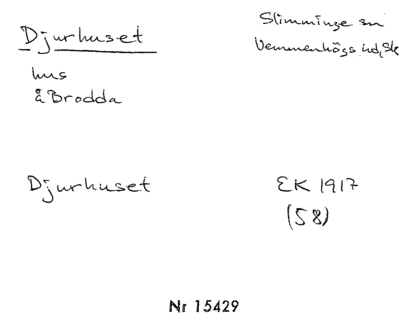 Djurhuset
Slimminge sn
Vemmenhögs hd, Sk
hus
å Brodda
Djurhuset
EK 1917
(58)
Nr 15429